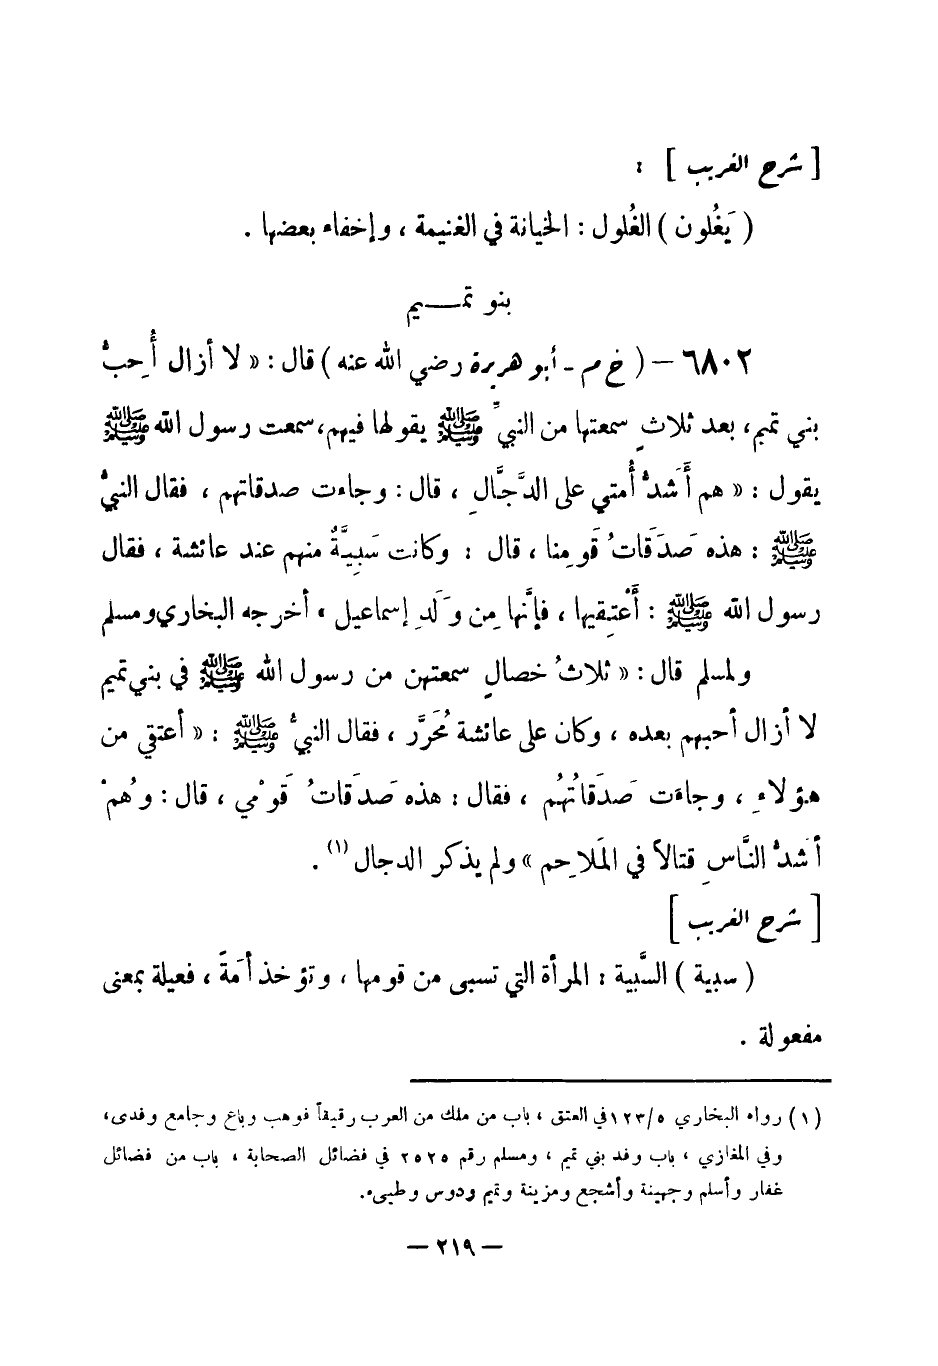 [ شرح الغريب ] :
( يَغُلون ) الغُلول : الخيانة في الغنيمة ، وإخفاء بعضها .
بنو تمـــيم
٦٨٠٢ – ( خ م - أبو هريرة رضي الله عنه ) قال : « لا أزال أُحِبُّ
بني تميم، بعد ثلاثٍ سمعتها من النبيِّ ﷺ يقولها فيهم،سمعت رسول الله ﷺ
يقول : « هم أَشَدُّ أُمتي على الدَّجَّالِ ، قال : وجاءت صدقاتهم ، فقال النبيُّ
ﷺ : هذه صَدَقَاتُ قَومِنا ، قال : وكانت سَبِيَّةٌ منهم عند عائشة ، فقال
رسول الله ﷺ : أَعْتِقِيها ، فإنَّها مِن وَلَدِ إسماعيل ، أخرجه البخاري ومسلم
ولمسلم قال : « ثلاثُ خصالٍ سمعتهن من رسول الله ﷺ في بني تميم
لا أزال أحبهم بعده ، وكان على عائشة مُحَرَّر ، فقال النبيُّ ﷺ : « أعتقي من
هؤلاءِ ، وجاءَت صَدَقَاتُهُم ، فقال : هذه صَدَقَاتُ قَوْمي ، قال : وهُمْ
أشَدُّ النَّاسِ قتالاً في المَلاحِم » ولم يذكر الدجال (١) .
[ شرح الغريب ]
( سبية ) السَّبية : المرأة التي تسبى من قومها ، وتؤخذ أمَةً ، فعيلة بمعنى
مفعولة .
(١) رواه البخاري ٥/١٢٣ في العتق ، باب من ملك من العرب رقيقاً فوهب وباع وجامع وفدى،
وفي المغازي ، باب وفد بني تميم ، ومسلم رقم ٢٥٢٥ في فضائل الصحابة ، باب من فضائل
غفار وأسلم وجهينة وأشجع ومزينة وتميم ودوس وطيىء.
– ٢١٩ –